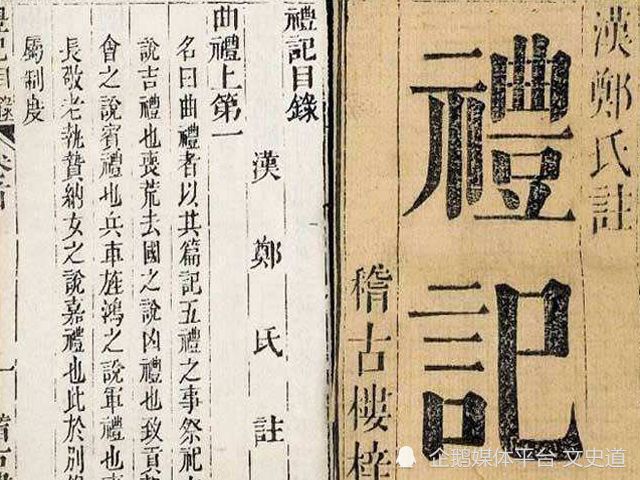 漢鄭氏註
禮記
稽古樓梓
禮記目錄
漢鄭氏註
曲禮上第一
名曰曲禮者以其篇記五禮之事祭祀
說吉禮也喪荒去國之說凶禮也致貢
會之說賓禮也兵車旌鴻之說軍禮也事
長敬老執贄納女之說嘉禮也此於別錄
屬制度
禮記目錄
企鹅媒体平台 文史道